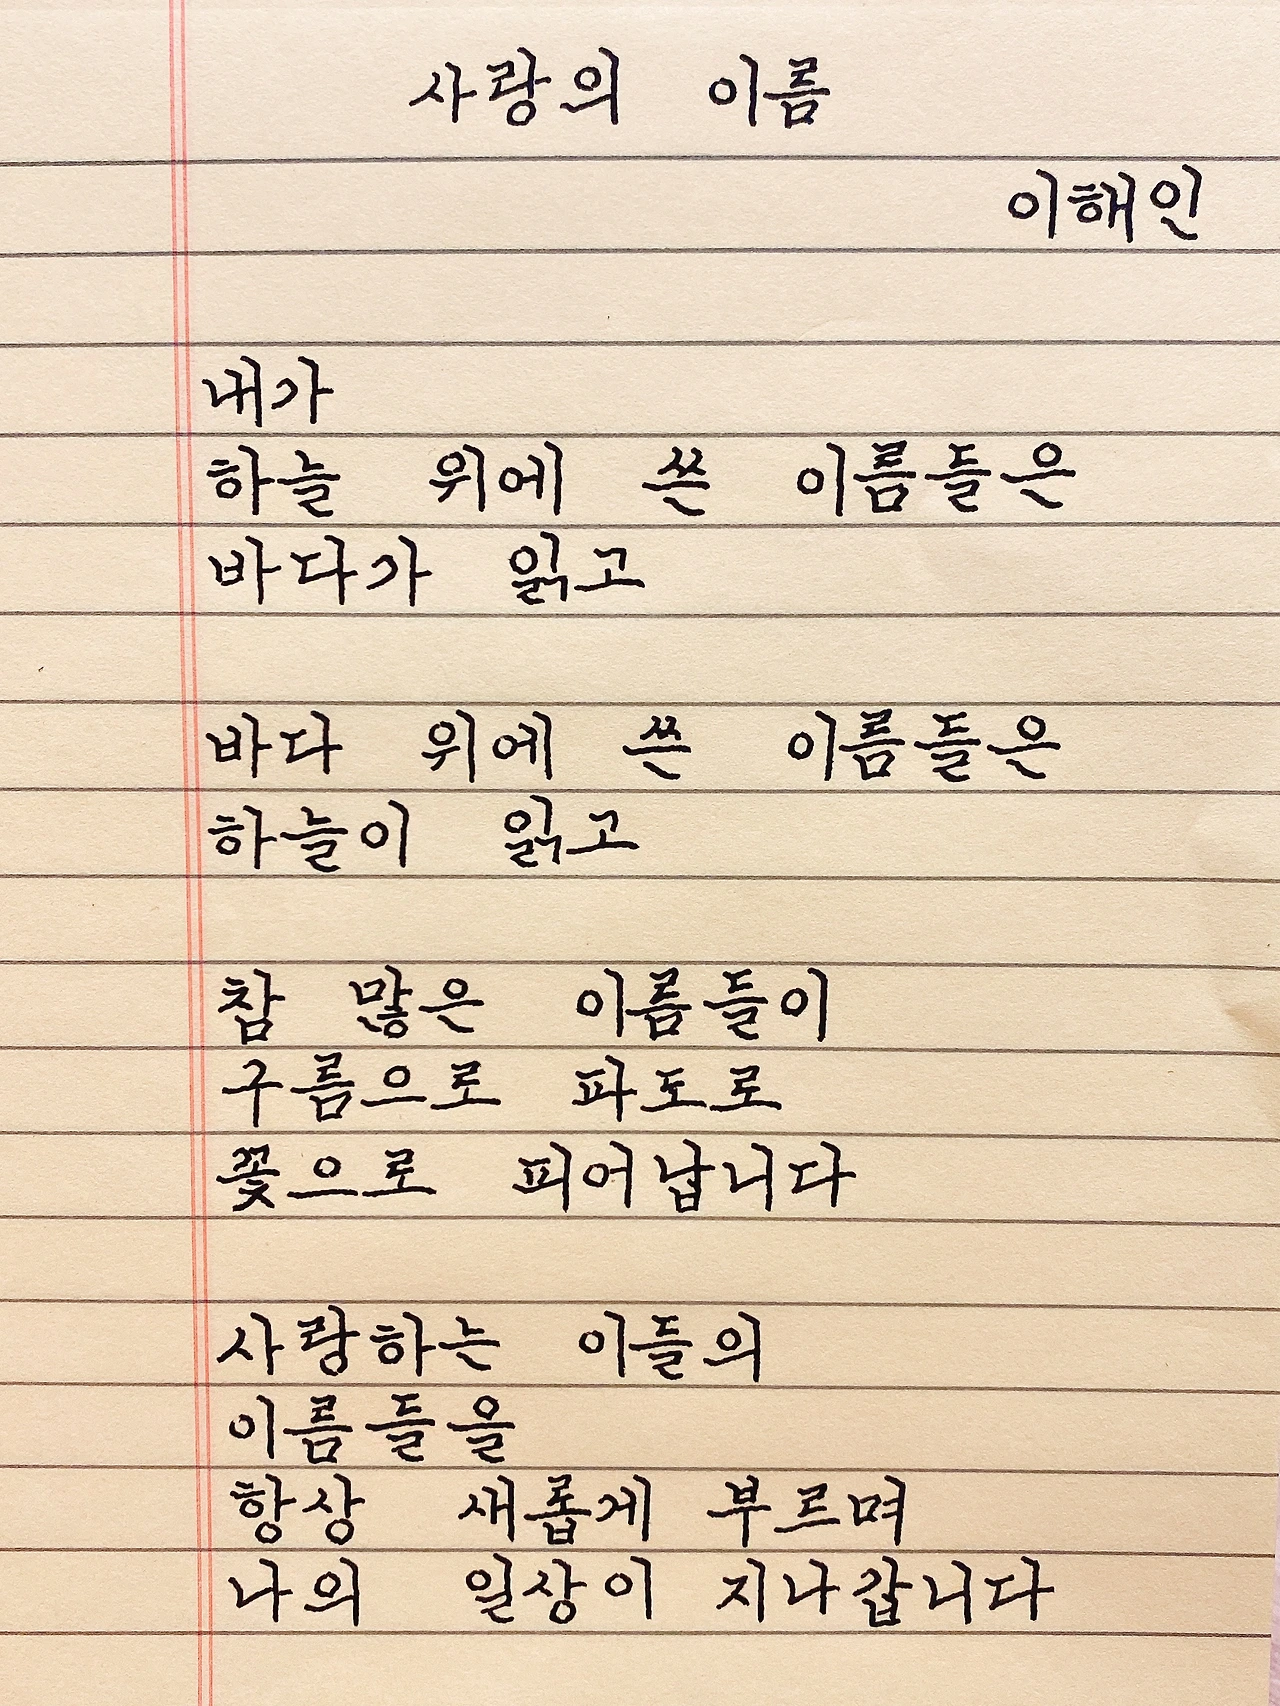 사랑의 이름
이해인
내가
하늘 위에 쓴 이름들은
바다가 읽고
바다 위에 쓴 이름들은
하늘이 읽고
참 많은 이름들이
구름으로 파도로
꽃으로 피어납니다
사랑하는 이들의
이름들을
항상 새롭게 부르며
나의 일상이 지나갑니다